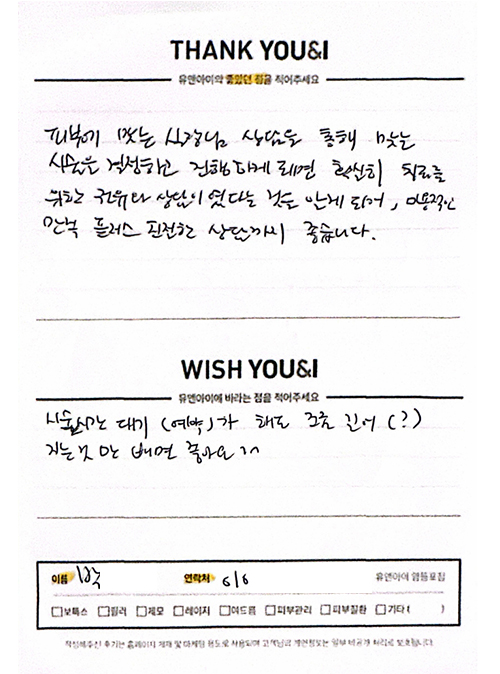 THANK YOU&I
유앤아이의 좋았던 점을 적어주세요
피부에 맞는 시장님 상담을 통해 맞는
시술을 결정하고 진행하게 되면 확실히 치료를
위한 권유와 상담이였다는 것을 안게 되어, 미용적인
만족 플러스 친절한 상담까지 좋습니다.
WISH YOU&I
유앤아이에 바라는 점을 적어주세요
시술시간 대기 (예약)가 해도 조금 길어 (?)
지는 것만 빼면 좋아요 ^^
이름
연락처 616
유앤아이 알뜰포집
□보톡스 □필러 □제모 □레이저 □여드름 □피부관리 □피부질환 □기타 ( )
작성해주신 후기는 홈페이지 게재 및 마케팅 용도로 사용되며 고객님의 개인정보는 일부 비공개 처리로 보호됩니다.